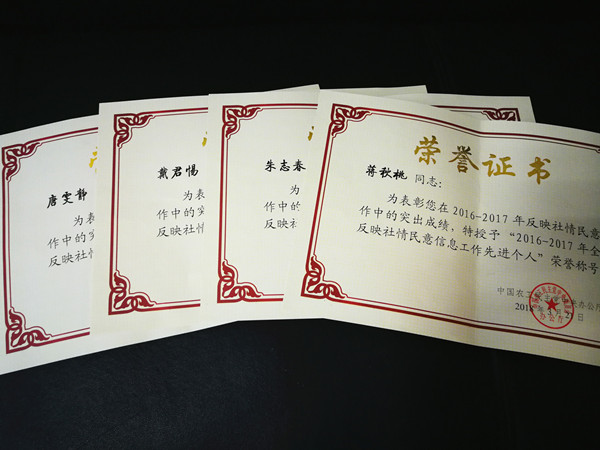 唐雯静
为表
作中的突
反映社情
戴君惕
为表
作中的突
反映社情
朱志春
为
作中的
反映社
荣誉证书
蒋秋桃 同志：
为表彰您在2016-2017年反映社情民意
作中的突出成绩，特授予“2016-2017年全
反映社情民意信息工作先进个人”荣誉称号
中国农工 办公厅
2018年3月 日
办公厅